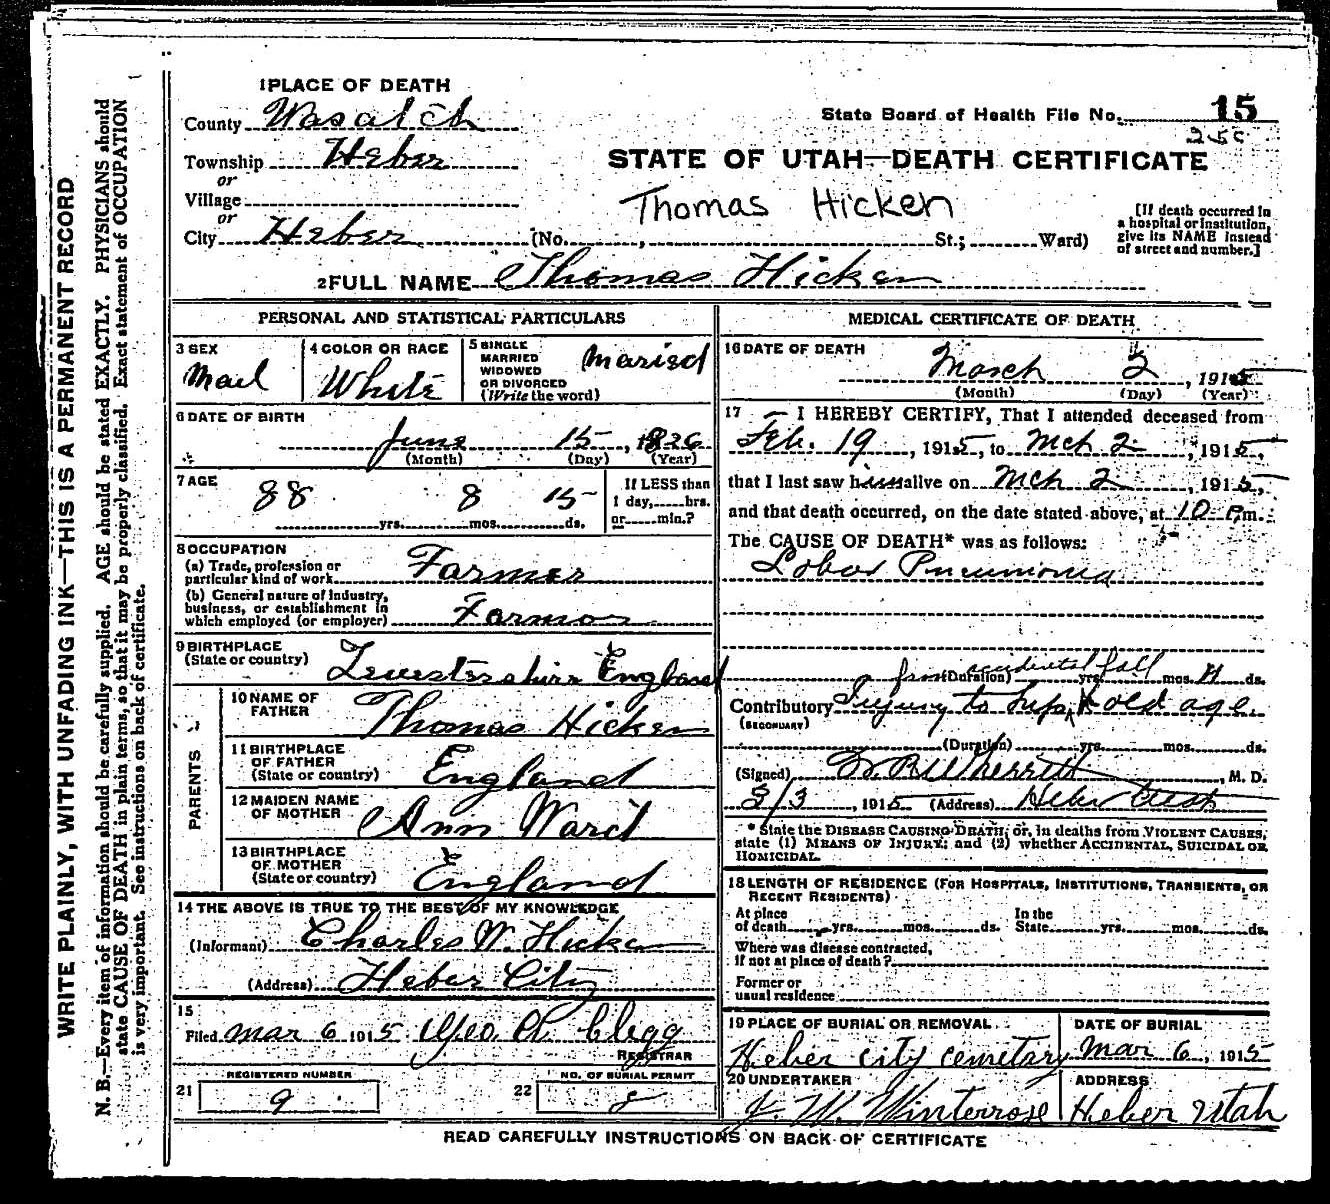 WRITE PLAINLY, WITH UNFADING INK—THIS IS A PERMANENT RECORD
N. B.—Every item of information should be carefully supplied. AGE should be stated EXACTLY. PHYSICIANS should
state CAUSE OF DEATH in plain terms, so that it may be properly classified. Exact statement of OCCUPATION
is very important. See instructions on back of certificate.
1 PLACE OF DEATH
County Wasatch
Township Heber
or
Village
or
City Heber (No. , St.; Ward)
State Board of Health File No. 15
STATE OF UTAH—DEATH CERTIFICATE
Thomas Hicken
[If death occurred in
a hospital or institution,
give its NAME instead
of street and number.]
2 FULL NAME Thomas Hicken
PERSONAL AND STATISTICAL PARTICULARS
3 SEX
Mael
4 COLOR OR RACE
White
5 SINGLE
MARRIED
WIDOWED
OR DIVORCED
(Write the word)
Maried
6 DATE OF BIRTH
June 15, 1826
(Month) (Day) (Year)
7 AGE
88 yrs. 8 mos. 15 ds.
If LESS than
1 day, hrs.
or min.?
8 OCCUPATION
(a) Trade, profession or
particular kind of work Farmer
(b) General nature of industry,
business, or establishment in
which employed (or employer) Farmor
9 BIRTHPLACE
(State or country)
Leicestershire England
PARENTS
10 NAME OF
FATHER
Thomas Hicken
11 BIRTHPLACE
OF FATHER
(State or country)
England
12 MAIDEN NAME
OF MOTHER
Ann Ward
13 BIRTHPLACE
OF MOTHER
(State or country)
England
14 THE ABOVE IS TRUE TO THE BEST OF MY KNOWLEDGE
(Informant) Charles W. Hicken
(Address) Heber City
15
Filed Mar 6 1915 Geo. A. Clegg
REGISTRAR
21 REGISTERED NUMBER
9
22 NO. OF BURIAL PERMIT
8
MEDICAL CERTIFICATE OF DEATH
16 DATE OF DEATH
March 2, 1915
(Month) (Day) (Year)
17 I HEREBY CERTIFY, That I attended deceased from
Feb. 19, 1915, to Mch 2, 1915,
that I last saw him alive on Mch 2, 1915,
and that death occurred, on the date stated above, at 10 P.m.
The CAUSE OF DEATH* was as follows:
Lobar Pneumonia
from accidental fall
(Duration) yrs. mos. ds.
Contributory Injury to hips & old age
(SECONDARY)
(Duration) yrs. mos. ds.
(Signed) W. R. Wherritt, M. D.
3/3, 1915 (Address) Heber Utah
* State the DISEASE CAUSING DEATH, or, in deaths from VIOLENT CAUSES,
state (1) MEANS OF INJURY; and (2) whether ACCIDENTAL, SUICIDAL OR
HOMICIDAL.
18 LENGTH OF RESIDENCE (FOR HOSPITALS, INSTITUTIONS, TRANSIENTS, OR
RECENT RESIDENTS)
At place
of death yrs. mos. ds.
In the
State yrs. mos. ds.
Where was disease contracted,
if not at place of death?
Former or
usual residence
19 PLACE OF BURIAL OR REMOVAL
Heber City Cemetary
DATE OF BURIAL
Mar 6, 1915
20 UNDERTAKER
J. W. Winterrose
ADDRESS
Heber Utah
READ CAREFULLY INSTRUCTIONS ON BACK OF CERTIFICATE